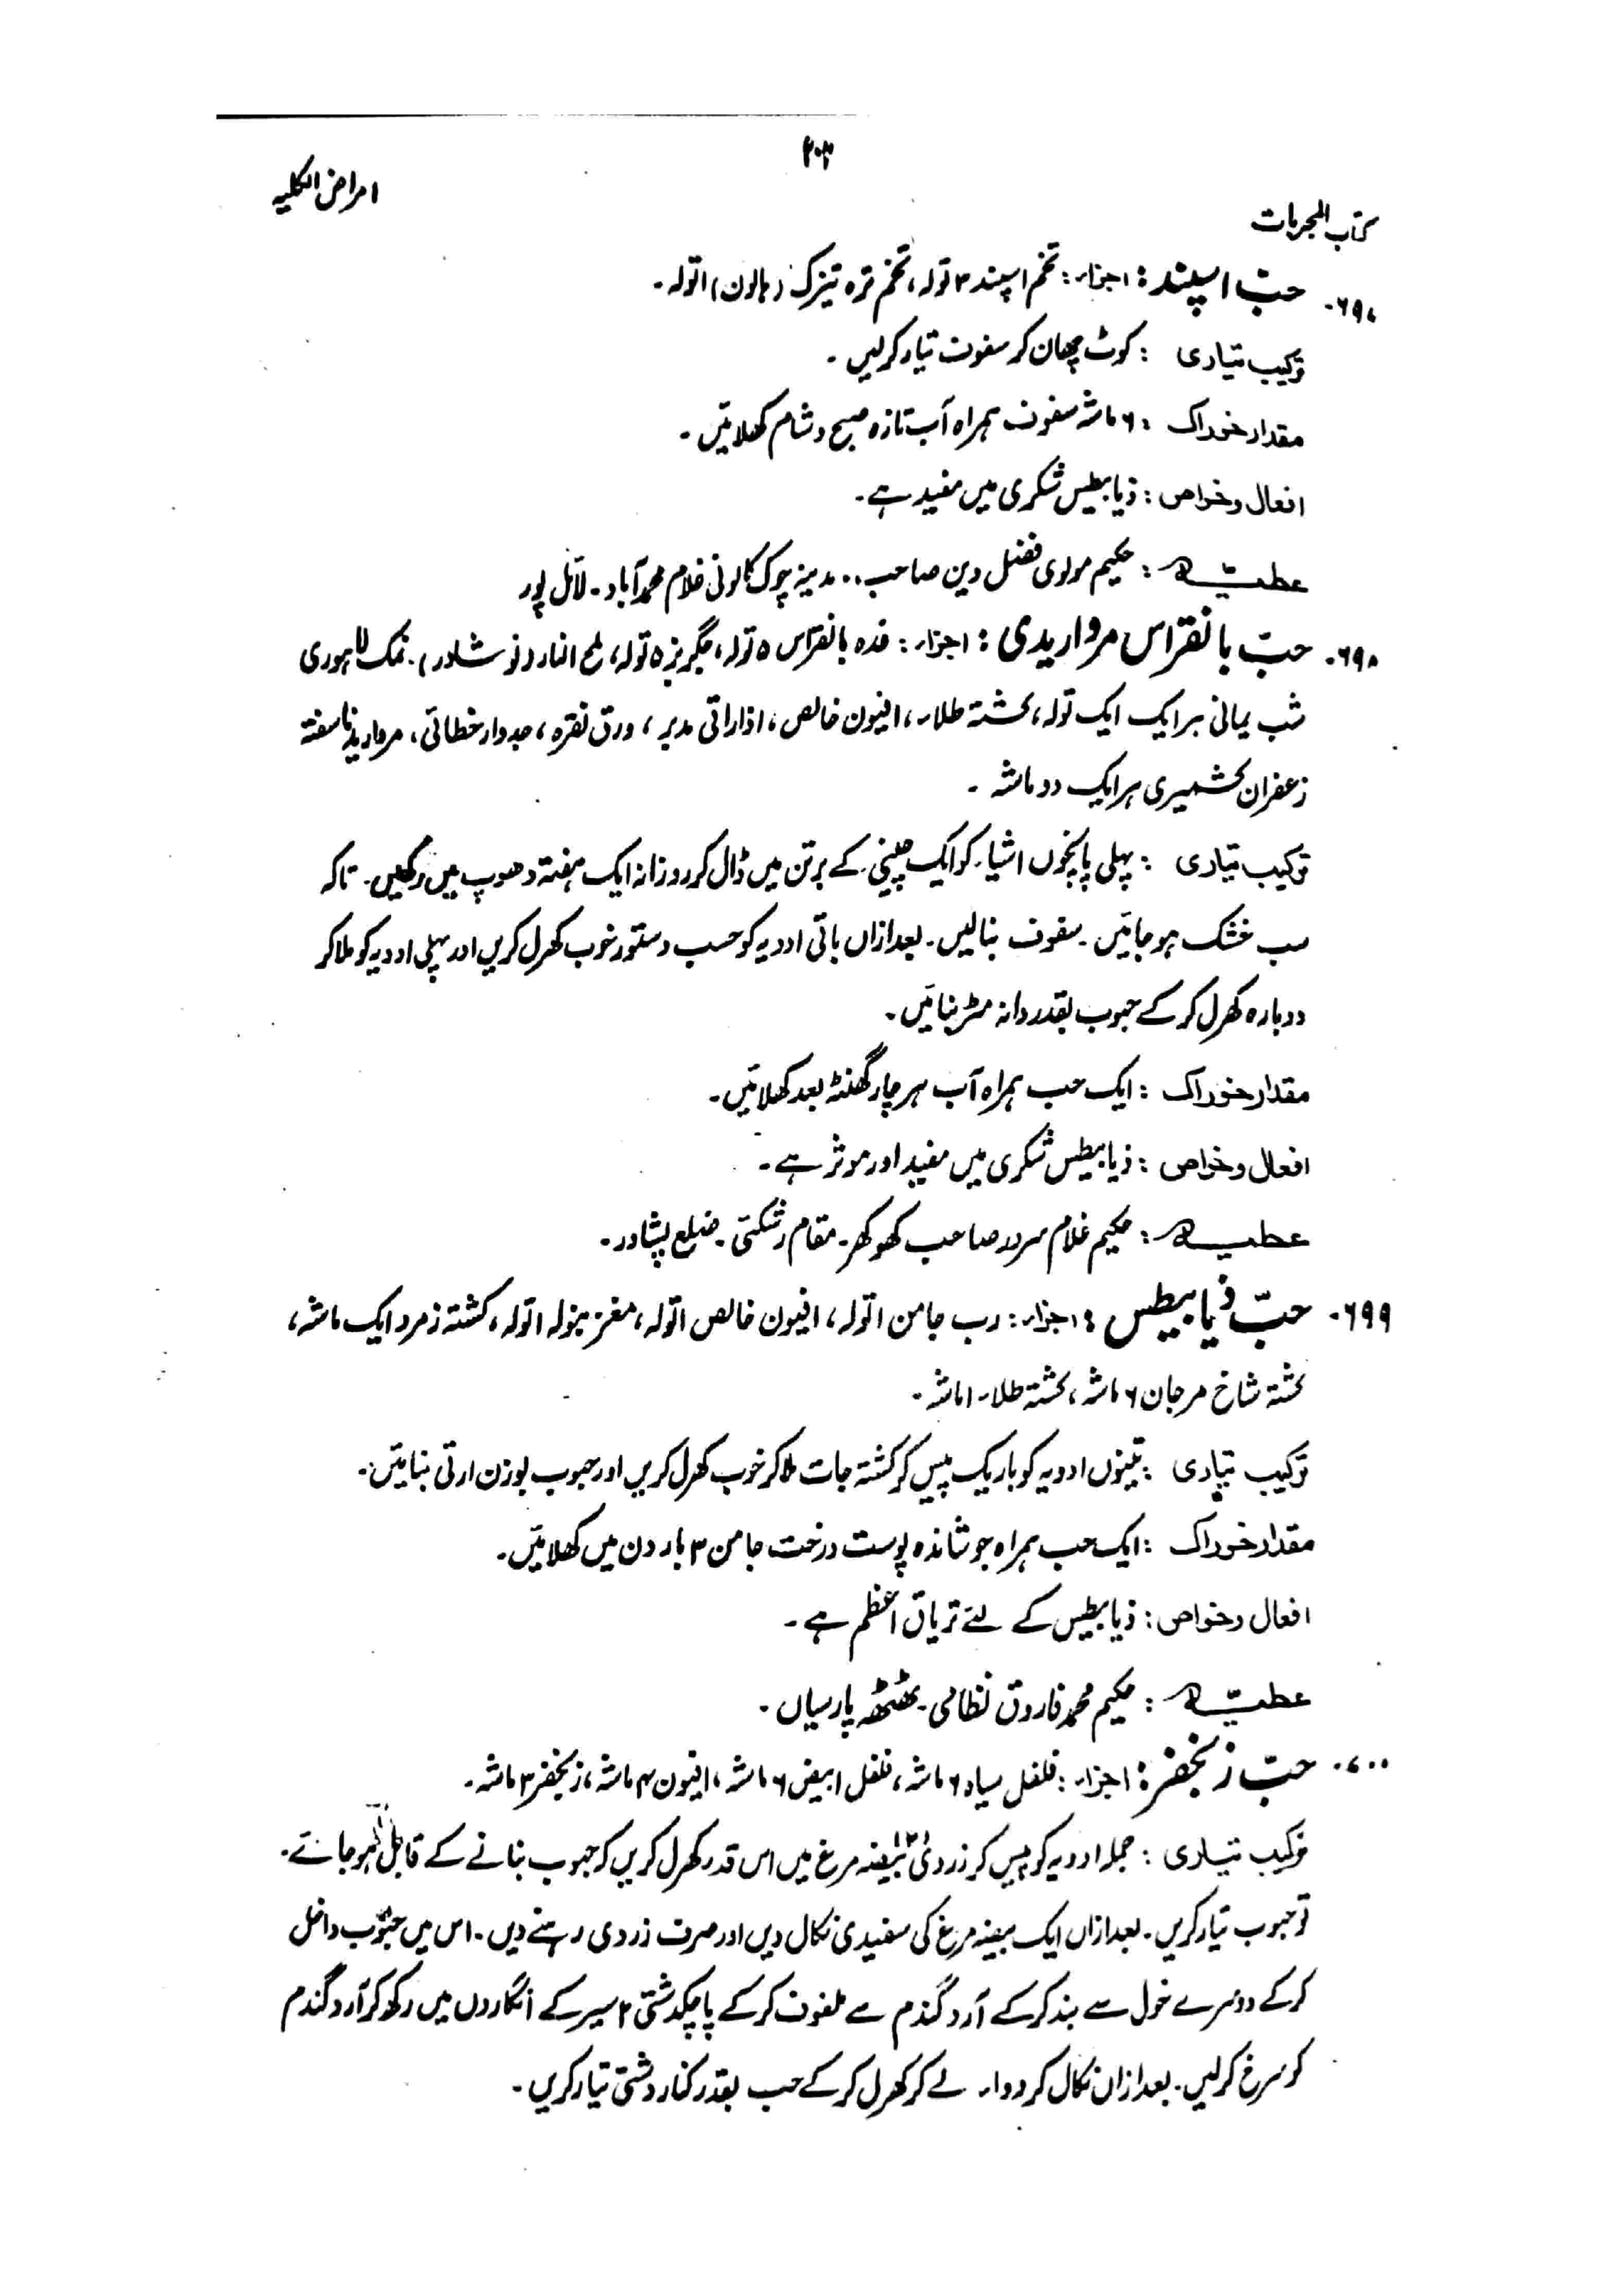 ۲۰۳
امراض الکلیہ
کتاب المجربات
۶۹۷۔ حبّ اسپند: اجزاء: تخم اسپند ۳ تولہ، تخم ترہ تیزک (ہالون) ۱ تولہ۔
ترکیب تیاری : کوٹ چھان کر سفوف تیار کرلیں۔
مقدار خوراک : ۶ ماشہ سفوف ہمراہ آب تازہ صبح و شام کھلائیں۔
افعال و خواص : ذیابیطیس شکری میں مفید ہے۔
عطیہ : حکیم مولوی فضل دین صاحب.. مدینہ چوک کالونی غلام محمد آباد۔ لائل پور
۶۹۸۔ حبّ بانقراس مرواریدی : اجزاء : غدہ بانقراس ۵ تولہ، جگر بز ۵ تولہ، ملح النار (نوشادر)، نمک لاہوری
شب یمانی ہر ایک ایک تولہ، کشتہ طلاء، افیون خالص، اذاراقی مدبر، ورق نقرہ، جدوار خطائی، مروارید ناسفتہ
زعفران کشمیری ہر ایک دو ماشہ۔
ترکیب تیاری : پہلی پانچوں اشیاء کو ایک چینی کے برتن میں ڈال کر روزانہ ایک ہفتہ دھوپ میں رکھیں۔ تاکہ
سب خشک ہو جائیں۔ سفوف بنالیں۔ بعد ازاں باقی ادویہ کو حسب دستور خوب کھرل کریں اور پہلی ادویہ کو ملا کر
دوبارہ کھرل کر کے حبوب بقدر دانہ مٹر بنائیں۔
مقدار خوراک : ایک حب ہمراہ آب ہر چار گھنٹہ بعد کھلائیں۔
افعال و خواص : ذیابیطس شکری میں مفید اور موثر ہے۔
عطیہ : حکیم غلام سرور صاحب کھوکھر۔ مقام رشکئی۔ ضلع پشاور۔
۶۹۹۔ حبّ ذیابیطس : اجزاء: رب جامن ۱ تولہ، افیون خالص ۱ تولہ، مغز بنولہ ۱ تولہ، کشتہ زمرد ایک ماشہ،
کشتہ شاخ مرجان ۶ ماشہ، کشتہ طلاء ۱ ماشہ۔
ترکیب تیاری : تینوں ادویہ کو باریک پیس کر کشتہ جات ملا کر خوب کھرل کریں اور حبوب بوزن ۱ رتی بنائیں۔
مقدار خوراک : ایک حب ہمراہ جوشاندہ پوست درخت جامن ۳ بار دن میں کھلائیں۔
افعال و خواص : ذیابیطیس کے لئے تریاق اعظم ہے۔
عطیہ : حکیم محمد فاروق نظامی۔ بھٹہ پارسیاں۔
۷۰۰۔ حبّ زنجفر : اجزاء : فلفل سیاہ ۶ ماشہ، فلفل ابیض ۶ ماشہ، افیون ۴ ماشہ، زنجفر ۳ ماشہ۔
ترکیب تیاری : جملہ ادویہ کو پیس کر زردی ۱۲ بیضہ مرغ میں اس قدر کھرل کریں کہ حبوب بنانے کے قابل ہو جائے۔
تو حبوب تیار کریں۔ بعد ازاں ایک بیضہ مرغ کی سفیدی نکال دیں اور صرف زردی رہنے دیں۔ اس میں حبوب داخل
کر کے دوسرے خول سے بند کر کے آرد گندم سے ملفوف کر کے پاچکدشتی ۲ سیر کے انگاروں میں رکھ کر آرد گندم
کو سرخ کرلیں۔ بعد ازاں نکال کر دواء لے کر کھرل کر کے حب بقدر کنار دشتی تیار کریں۔